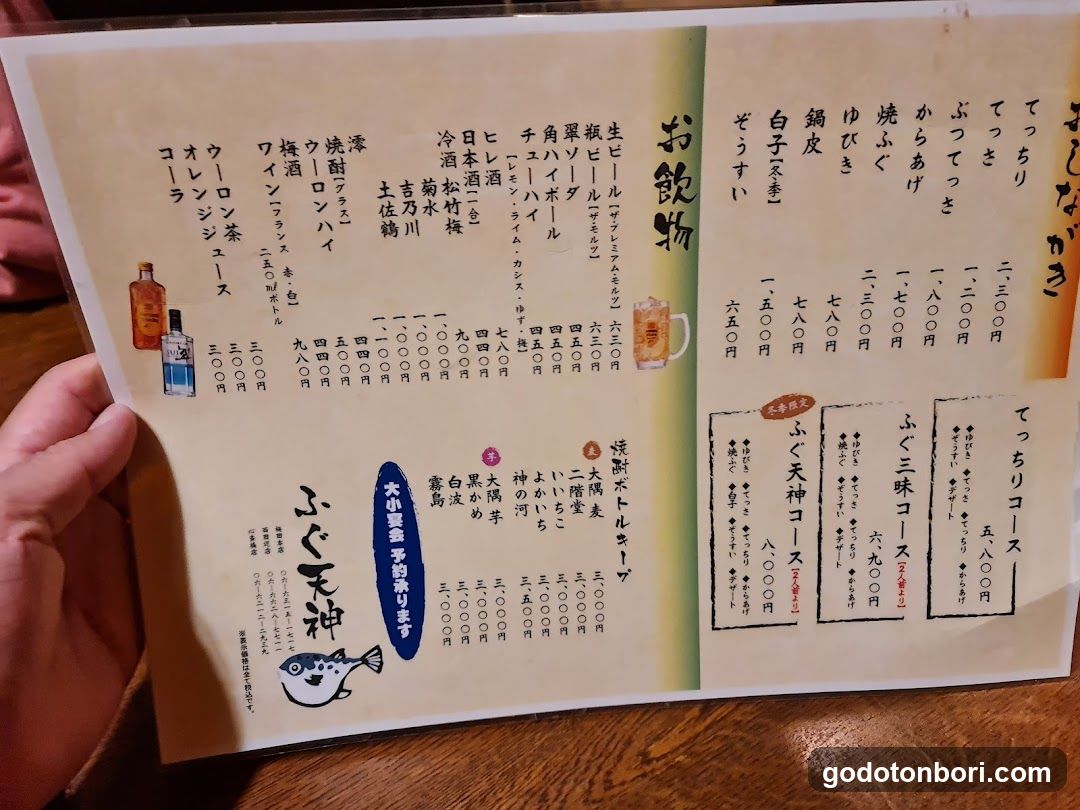 おしながき
てっちり 二、三〇〇円
てっさ 一、二〇〇円
ぶつてっさ 一、八〇〇円
からあげ 一、七〇〇円
焼ふぐ 二、三〇〇円
ゆびき 七八〇円
鍋皮 七八〇円
白子[冬季] 一、五〇〇円
ぞうすい 六五〇円
てっちりコース 五、八〇〇円
◆ゆびき ◆てっさ ◆てっちり ◆からあげ
◆ぞうすい ◆デザート
ふぐ三昧コース[2人前より] 六、九〇〇円
◆ゆびき ◆てっさ ◆てっちり ◆からあげ
◆焼ふぐ ◆ぞうすい ◆デザート
冬季限定
ふぐ天神コース[2人前より] 八、〇〇〇円
◆ゆびき ◆てっさ ◆てっちり ◆からあげ
◆焼ふぐ ◆白子 ◆ぞうすい ◆デザート
お飲物
生ビール[ザ・プレミアム・モルツ] 六三〇円
瓶ビール[ザ・モルツ] 六三〇円
翠ソーダ 四五〇円
角ハイボール 四五〇円
チューハイ 四五〇円
[レモン・ライム・カシス・ゆず・梅]
ヒレ酒 七八〇円
日本酒[一合] 四四〇円
冷酒 松竹梅 九〇〇円
菊水 一、〇〇〇円
吉乃川 一、〇〇〇円
土佐鶴 一、〇〇〇円
澪 一、一〇〇円
焼酎[グラス] 四四〇円
ウーロンハイ 五〇〇円
梅酒 四四〇円
ワイン[フランス 赤・白] 九八〇円
二五〇mlボトル
ウーロン茶 三〇〇円
オレンジジュース 三〇〇円
コーラ 三〇〇円
焼酎ボトルキープ
麦 大隅 麦 三、〇〇〇円
二階堂 三、〇〇〇円
いいちこ 三、〇〇〇円
よかいち 三、〇〇〇円
神の河 三、五〇〇円
芋 大隅 芋 三、〇〇〇円
黒かめ 三、〇〇〇円
白波 三、〇〇〇円
霧島 三、〇〇〇円
大小宴会 予約承ります
ふぐ天神
梅田本店 〇六-六三一五-一七一七
心斎橋店 〇六-六二一二-二九三九
※表示価格は全て税込です。
godotonbori.com